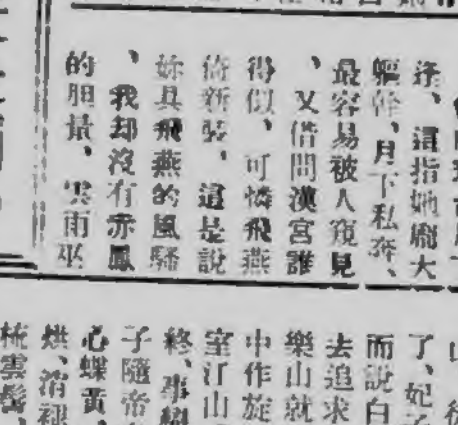 逢、這指她廟大
軀幹、月下私奔、
最容易被人窺見
、又借問漢宮誰
得似、可憐飛燕
倚新裝、這是說
妳具飛燕的風騷
、我却沒有赤鳳
的胆量、雲雨巫
山
了、妃子
而說白
去追求
樂山就
中作旋
室汀山
終、事
子隨帝
心蝶黃、
烘、渭裡
梳雲鬢、